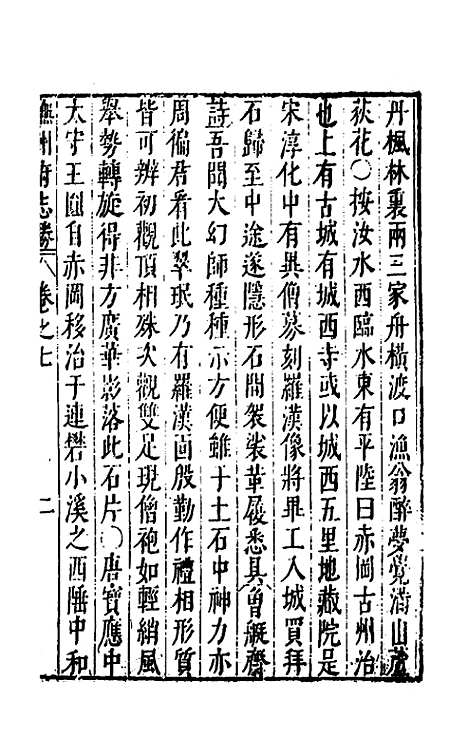 丹楓林裏兩三家舟橫渡口漁翁醉夢覺滿山蘆
荻花○按汝水西臨水東有平陸曰赤岡古州治
也上有古城有城西寺或以城西五里地藏院是
宋淳化中有異僧募刻羅漢像將畢工入城買拜
石歸至中途遂隱形石間袈裟革履悉具曾艇齋
詩吾聞大幻師種種示方便雖于土石中神力亦
周徧君看此翠珉乃有羅漢面殷勤作禮相形質
皆可辨初觀頂相殊次觀雙足現僧袍如輕綃風
舉勢轉旋得非方廣華影落此石片○唐寶應中
太守王圎自赤岡移治于連礬小溪之西陲中和
撫州府志勝 卷之七 二